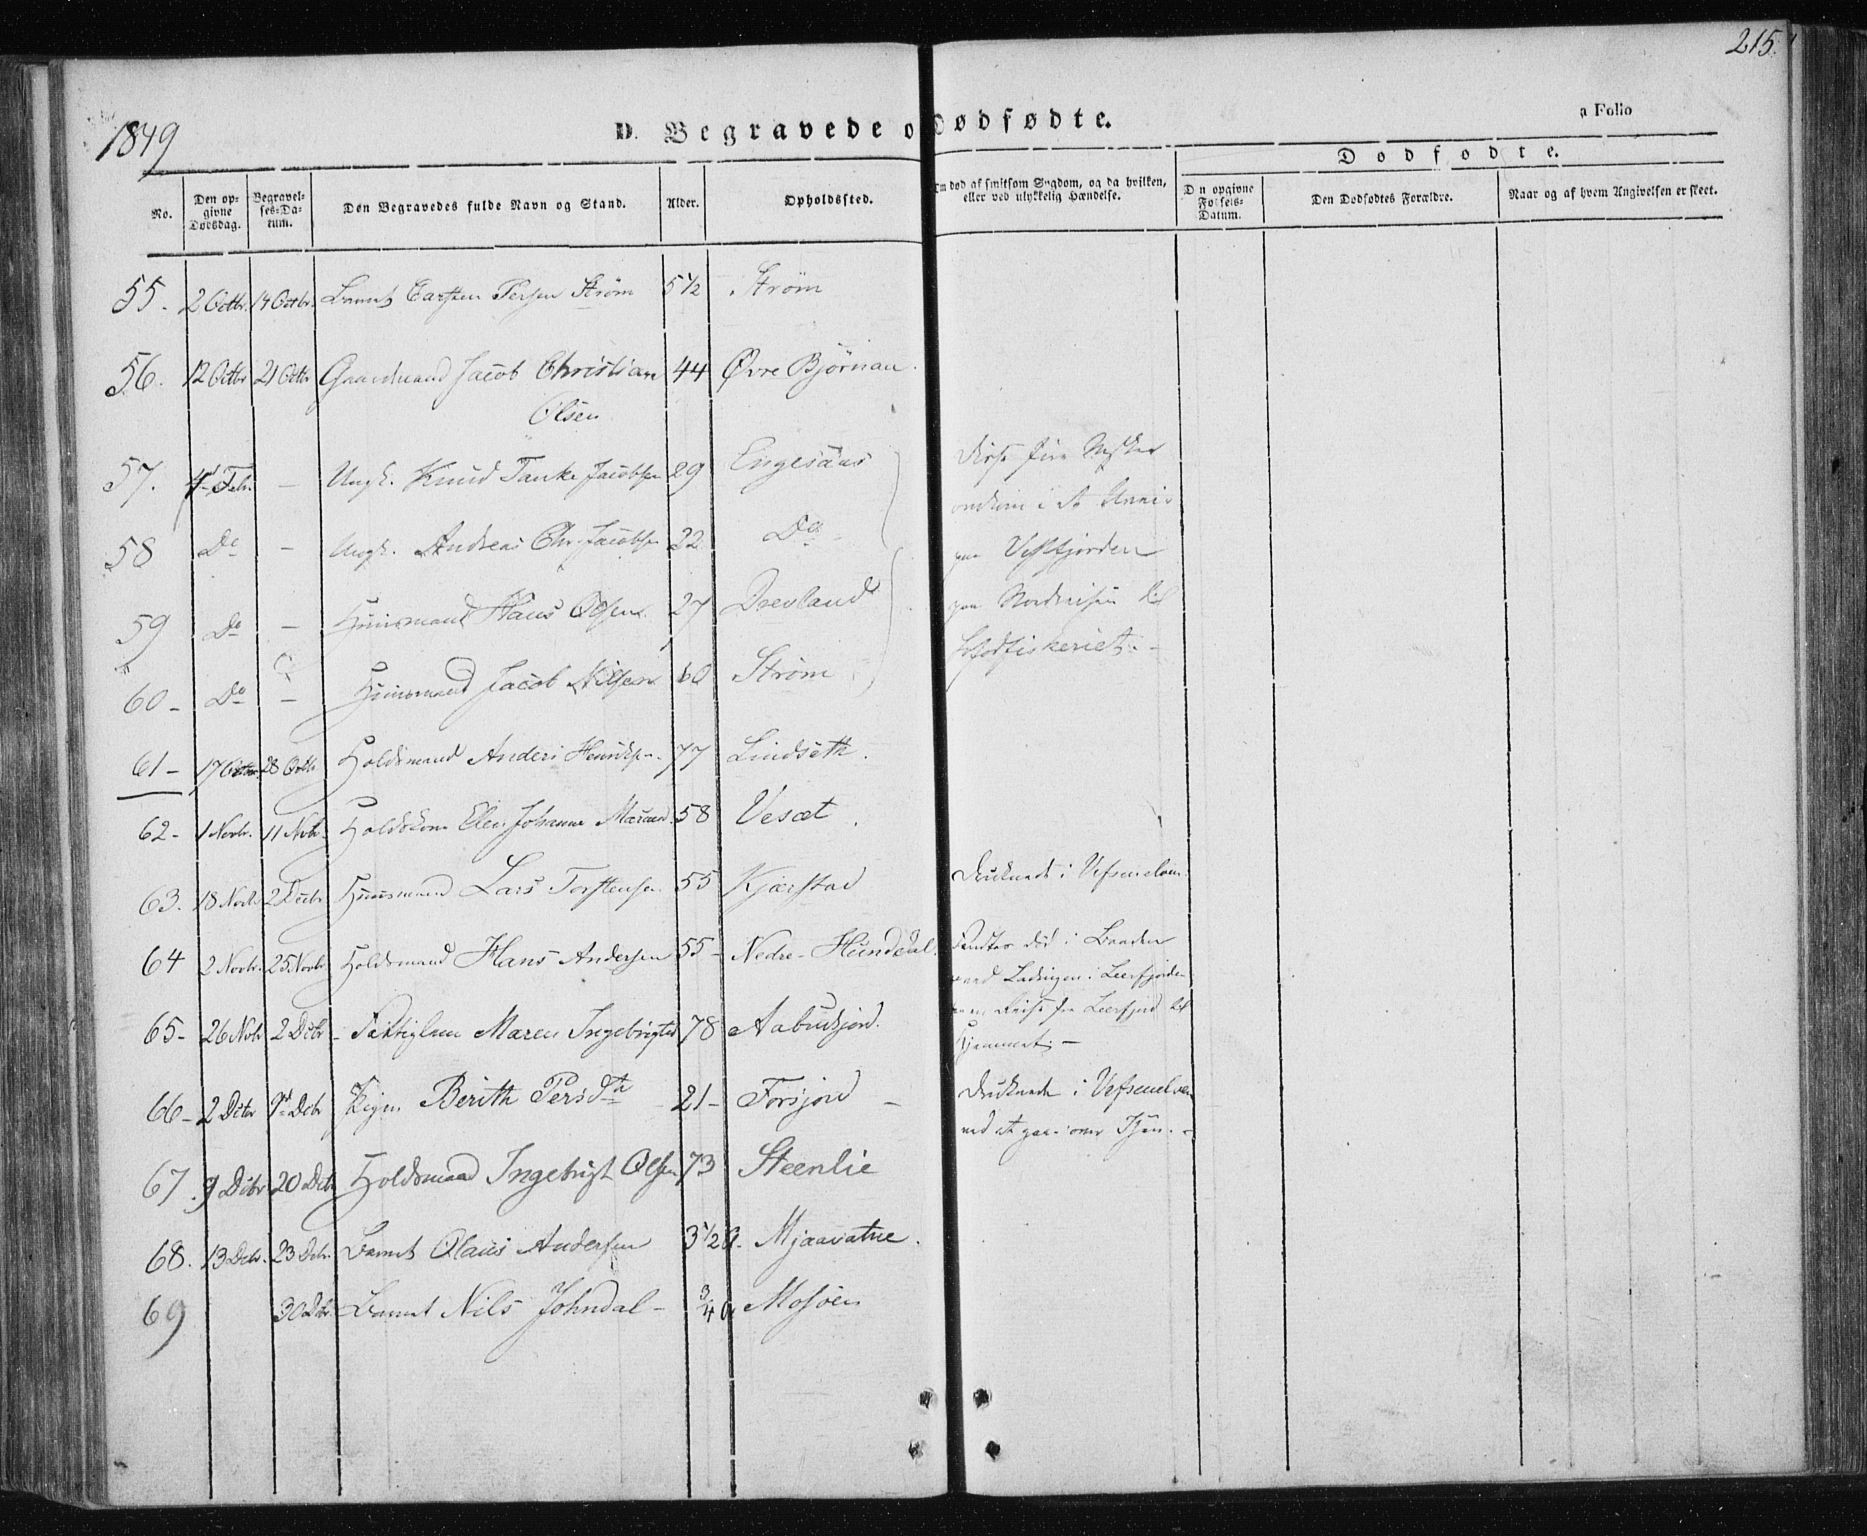 215.
1849
D. Begravede o dødfødte.
a Folio
Dødfødte.
No.
Den opgivne Dødsdag.
Begravelses-Datum.
Den Begravedes fulde Navn og Stand.
Alder.
Opholdssted.
Om død af smitsom Sygdom, og da hvilken, eller ved ulykkelig Hændelse.
Den opgivne Fødsels-Datum.
Den Dødfødtes Forældre.
Naar og af hvem Angivelsen er skeet.
55. 2 Octbr. 14 Octbr. Barnet Carsten Persen Strøm 5 1/2 Strøm
56. 12 Octbr 21 Octbr Gaardmand Jacob Christian 44 Øvre Bjørnaa.
Olsen
57. 4de Febr. — Ungk. Knud Tanke Jacobsen 29 Engesaas
Disse fire
omkom i
58 Do — Ungk. Andreas Chr. Jacobsen 22 Do
paa Vestfjorden
59 Do — Huusmand Hans Olsen 27 Drevland
paa Nordreisen til
Lofodfiskeriet. —
60 - Do — Huusmand Jacob Nilsen 60 Strøm
61 - 17 Octbr. 28 Octbr Holdsmand Anders Henriksen. 77 Lindseth.
62 - 1 Novbr. 11 Nvbr. Holdskone Elen Johanne 58 Vesæt.
63. 18 Novbr 2 Decbr Huusmand Lars Torstensen 55 Kjærstad
druknede i Vefsenelven
64 2 Novbr. 25 Novbr Holdsmand Hans Andersen 55 - Nedre-Hundaal.
Fandtes død i Baaden
ved i Leerfjorden
paa Reise fra Leerfjord til
Hjemmet. —
65 - 26 Nvbr 2 Dcbr - Fattiglem Maren Ingebrigtsd 78 Aabudsjord.
66 - 2 Dcbr 9de Dcbr Pigen Berith Persdth 21 - Forsjord —
druknede i Vefsenelven
ved at gaa over Isen. -
67 9 Dcbr 20 Dcbr Holdsmand Ingebrigt Olsen 73 Steenlie
68. 13 Dcbr. 23 Dcbr. Barnet Olaus Andersen 3 1/2 A. Mjaavatne.
69 30 Dcbr Barnet Nils Johndal - 3/4 A Mosøen